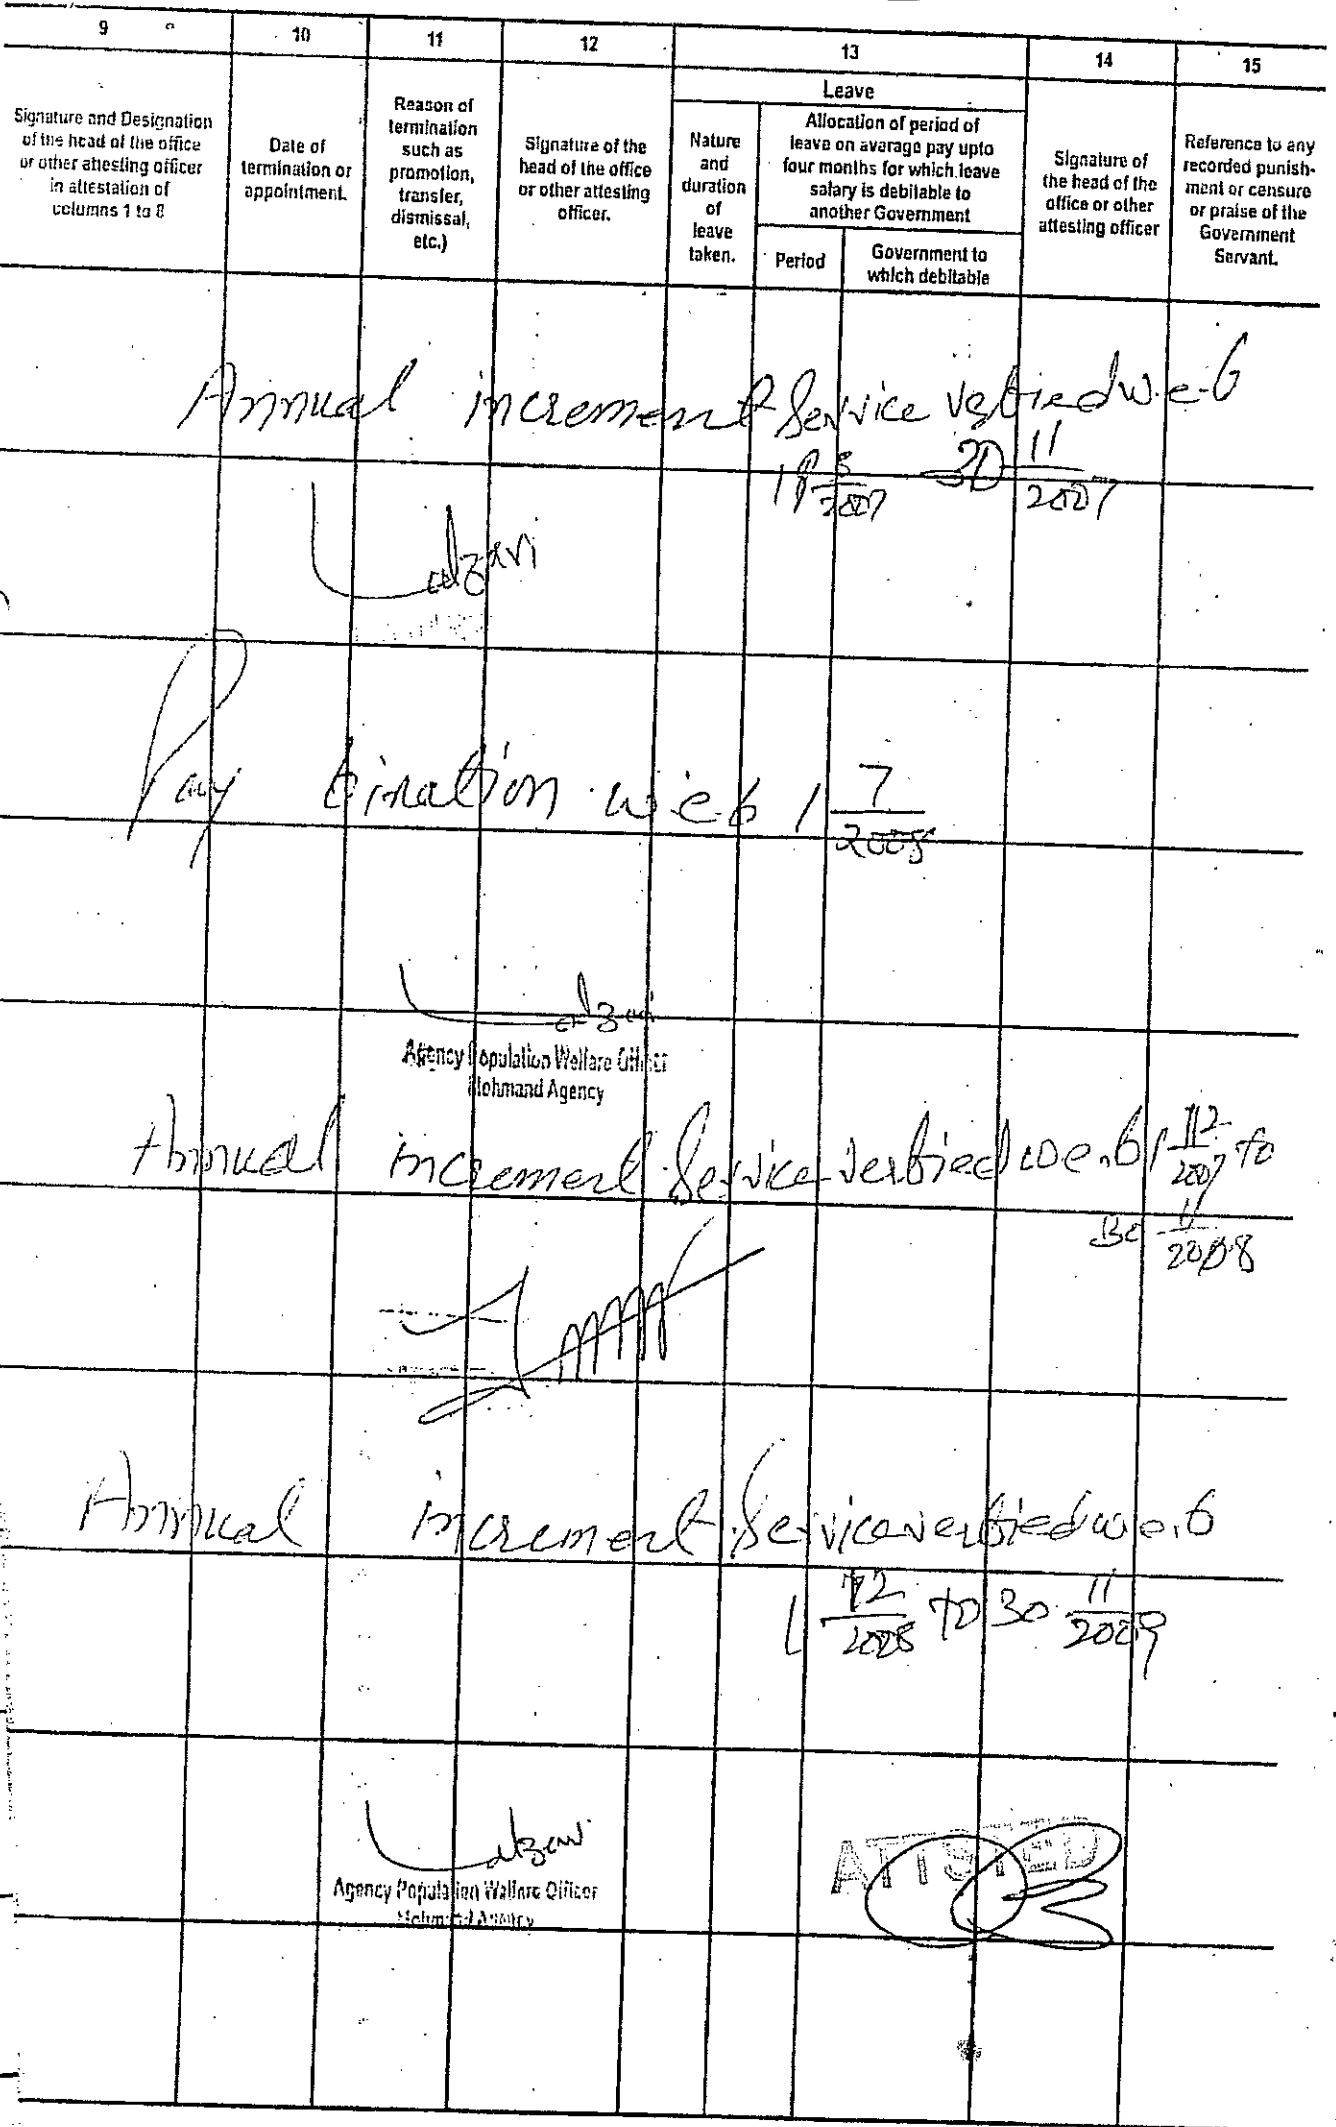 9 10 11 12 13 14 15
Signature and Designation
of the head of the office
or other attesting officer
in attestation of
columns 1 to 8
Date of
termination or
appointment.
Reason of
termination
such as
promotion,
transfer,
dismissal,
etc.)
Signature of the
head of the office
or other attesting
officer.
Leave
Nature
and
duration
of
leave
taken.
Allocation of period of
leave on avarage pay upto
four months for which leave
salary is debitable to
another Government
Period
Government to
which debitable
Signature of
the head of the
office or other
attesting officer
Reference to any
recorded punish-
ment or censure
or praise of the
Government
Servant.
Annual increment Service verified w.e.f
30 11/2007
Pay w.e.f 1 7/2008
Agency Population Welfare Officer
Mohmand Agency
Annual increment Service verified w.e.f 1 12/2007 to
30 11/2008
Annual increment Service verified w.e.f
1 12/2008 to 30 11/2009
Agency Population Welfare Officer
Mohmand Agency
ATTSTED